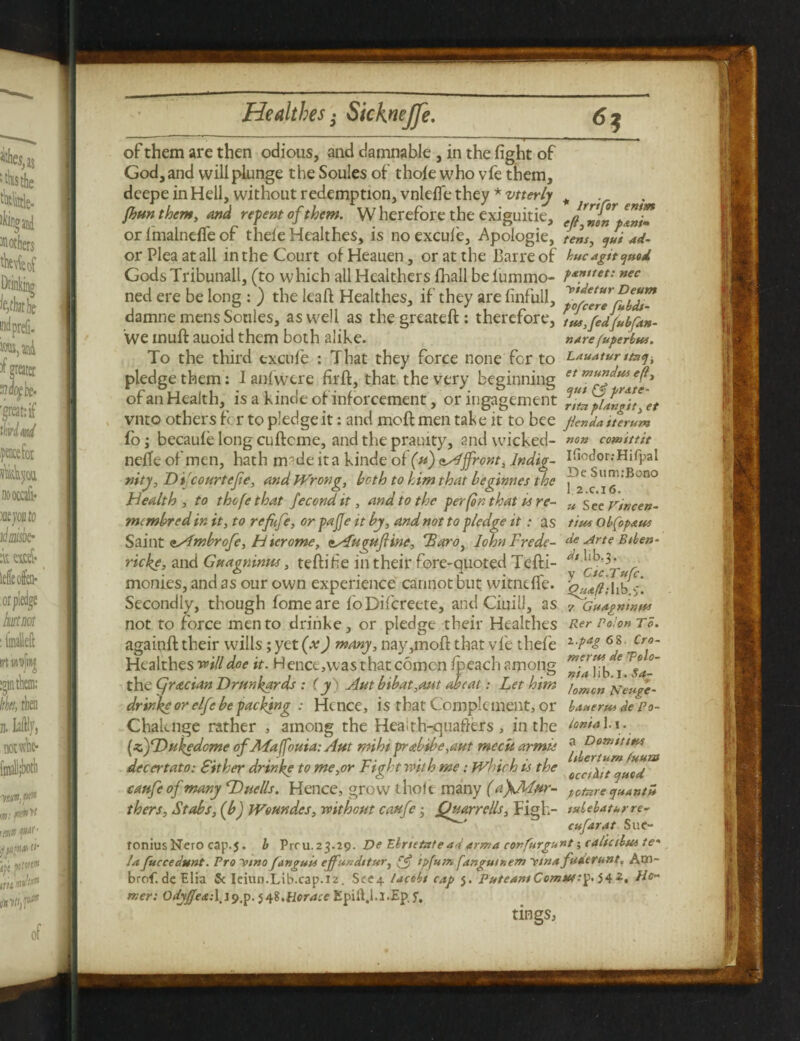 Healthes; Sicknesse. 63
of them are then odious, and damnable, in the sight of
God, and will plunge the Soules of those who vse them,
deepe in Hell, without redemption, vnlesse they * vtterly
shun them, and repent of them. Wherefore the exiguitie,
or smalnesse of these Healthes, is no excuse, Apologie,
or Plea at all in the Court of Heauen, or at the Barre of
Gods Tribunall, (to which all Healthers shall be summo-
ned ere be long:) the least Healthes, if they are sinfull,
damne mens Soules, as well as the greatest: therefore,
we must auoid them both alike.
To the third excuse: That they force none for to
pledge them: I answere first, that the very beginning
of an Health, is a kinde of inforcement, or ingagement
vnto others for to pledge it: and most men take it to bee
so; because long custome, and the prauity, and wicked-
nesse of men, hath made it a kinde of (u) Affront, Indig-
nity, Discourtesie, and Wrong, both to him that beginnes the
Health, to those that second it, and to the person that is re-
membred in it, to refuse, or passe it by, and not to pledge it: as
Saint Ambrose, Hierome, Augustine, Baro, Iohn Frede-
ricke, and Guagninus, testifie in their fore-quoted Testi-
monies, and as our own experience cannot but witnesse.
Secondly, though some are so Discreete, and Ciuill, as
not to force men to drinke, or pledge their Healthes
against their wills; yet (x) many, nay, most that vse these
Healthes will doe it. Hence, was that cōmon speach among
the Græcian Drunkards: (y) Aut bibat, aut abeat: Let him
drinke or else be packing: Hence, is that Complement, or
Chalenge rather, among the Health-quaffers, in the
(z) Dukedome of Massouia: Aut mihi præbibe, aut mecū armis
decertato: Either drinke to me, or Fight with me: Which is the
cause of many Duells. Hence, grow those many (a) Mur-
thers, Stabs, (b) Woundes, without cause; Quarrells, Figh-
tings,
* Irrisor enim
est, non pœni-
tens, qui ad-
huc agit quod
pœnitet: nec
videtur Deum
poscere subdi-
tus, sed subsan-
nare superbus.
Lauatur itaq;
et mundus est,
qui & præte-
rita plangit, et
flenda iterum
non comittit
Isiodor: Hispal
De Sum: Bono
l 2.c.16.
u See Vincen-
tius Obsopæus
de Arte Biben-
di lib.3.
y Cic. Tusc.
Quæst: lib.5.
z Guagninus
Rer Polon To.
2.pag 68. Cro-
merus de Polo-
nia lib.1. Sa-
lomon Neuge-
bauerus de Po-
lonia l.1.
a Domitius
libertum suum
occidit quod
potare quantū
iubebatur re-
cusarat Sue-
tonius Nero cap.5. b Prou.23.29. De Ebrietate ad arma consurgunt; calicibus te-
la succedunt. Pro vino sanguis effunditur, & ipsum sanguinem vina fuderunt. Am-
bros. de Elia & Ieiun. Lib. cap.12. See 4 Iacobi cap 5. Puteani Comus: p.542. Ho-
mer: Odyssea: l.19.p.548. Horace Epist. l.1. Ep.5.